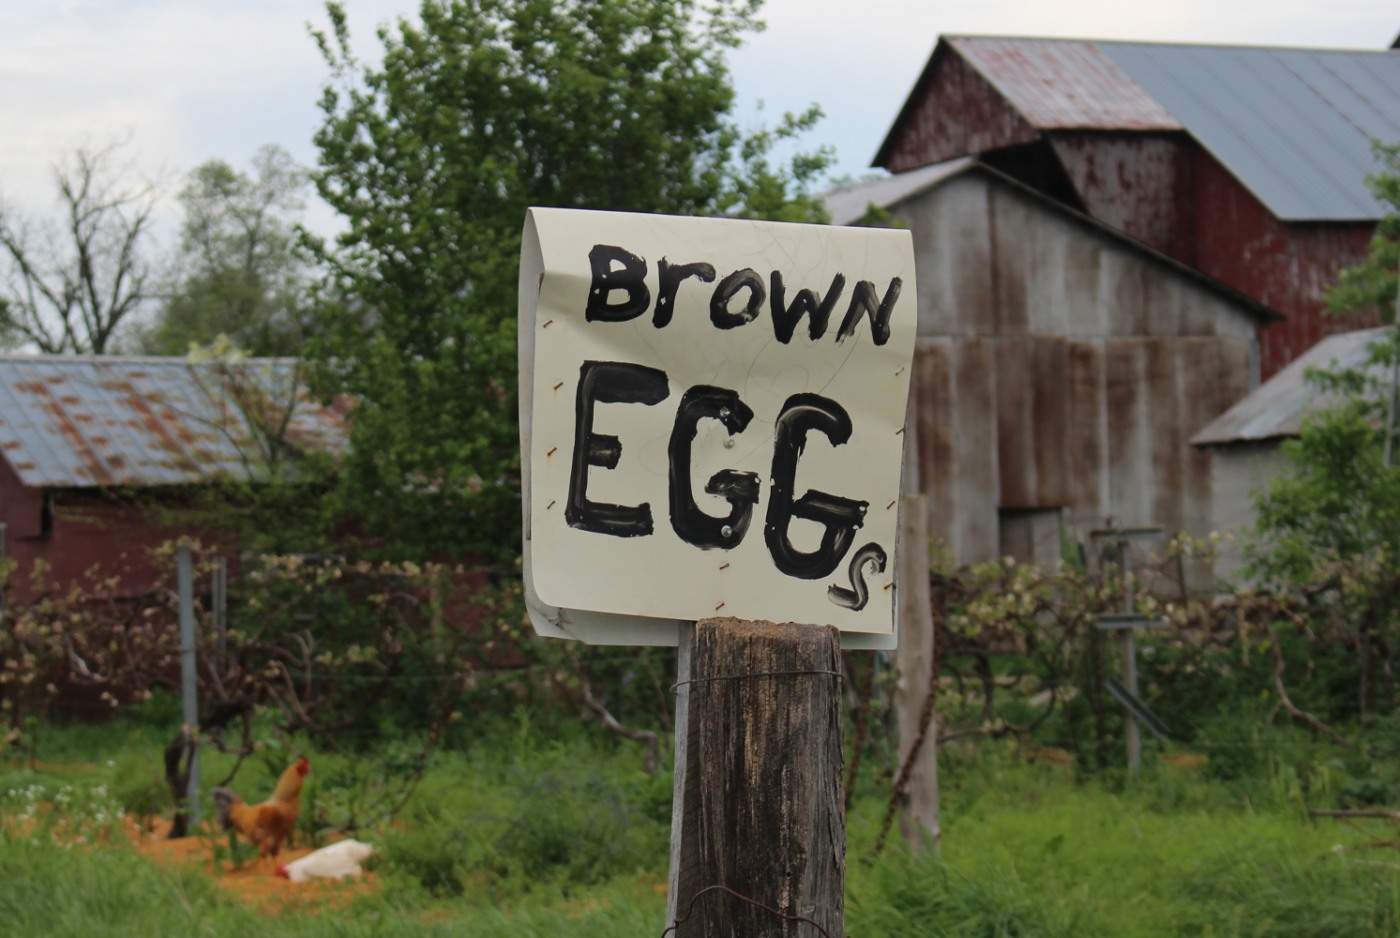 Brown
EGGs